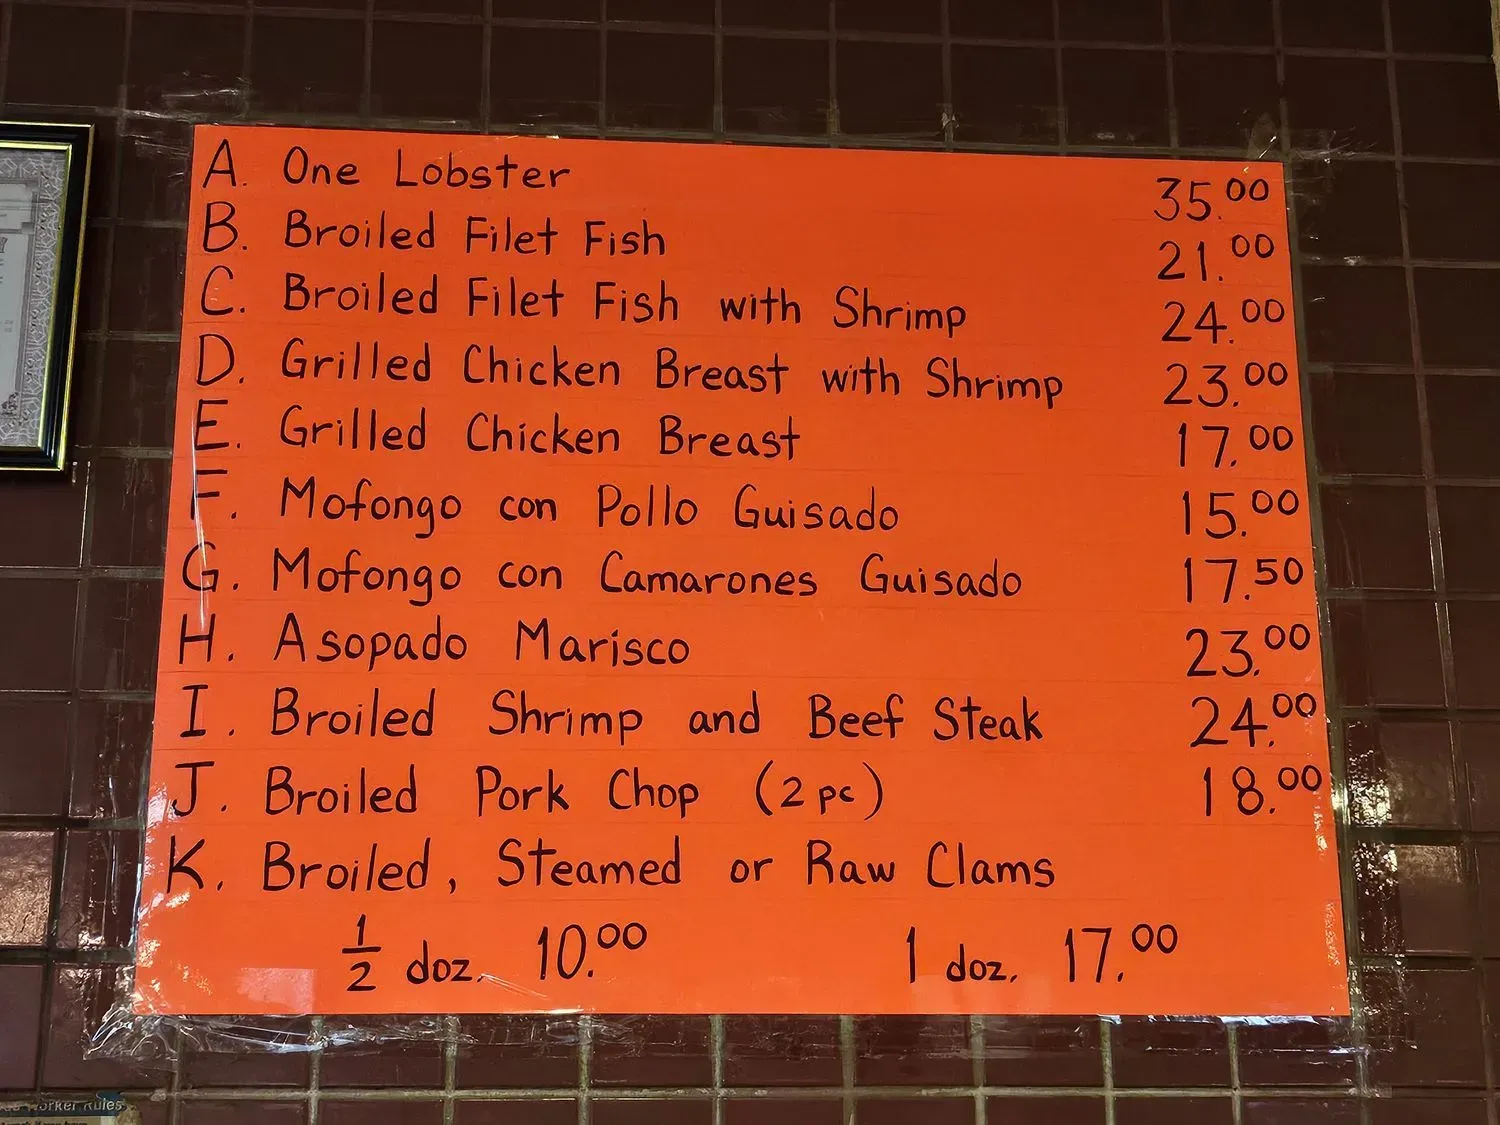 A. One Lobster 35.00
B. Broiled Filet Fish 21.00
C. Broiled Filet Fish with Shrimp 24.00
D. Grilled Chicken Breast with Shrimp 23.00
E. Grilled Chicken Breast 17.00
F. Mofongo con Pollo Guisado 15.00
G. Mofongo con Camarones Guisado 17.50
H. Asopado Marisco 23.00
I. Broiled Shrimp and Beef Steak 24.00
J. Broiled Pork Chop (2 pc) 18.00
K. Broiled, Steamed or Raw Clams
1/2 doz. 10.00 1 doz. 17.00
Worker Rules